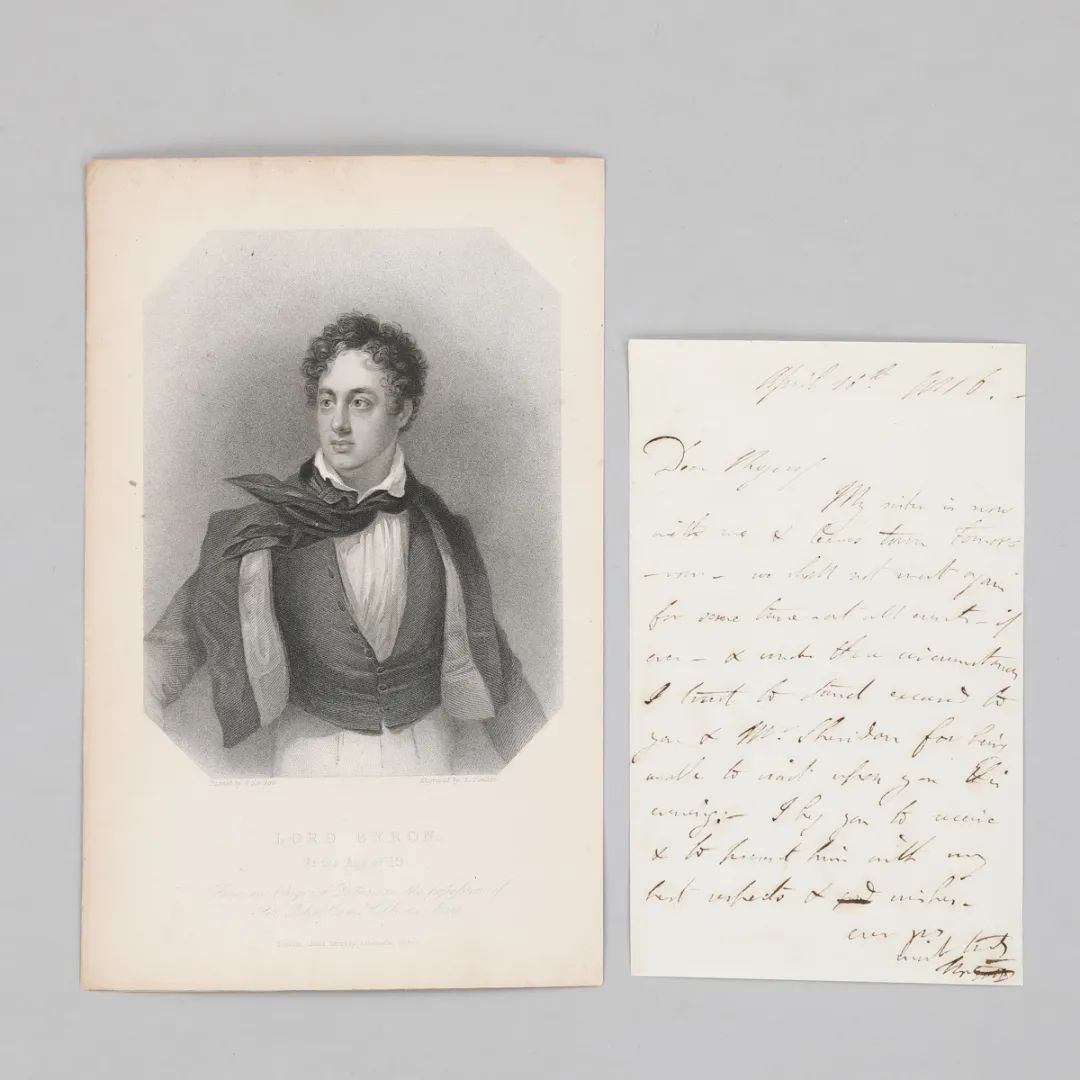 Painted by G. Sanders
Engraved by E. Finden
LORD BYRON.
At the Age of 19.
From an Original Picture in the possession of
Sir John Cam Hobhouse Bart.
London, John Murray, Albemarle
April 15th 1816.
Dear Rogers
My sister is now
with me & leaves town tomor-
-row - we shall not meet again
for some time at all events - if
ever - & under these circumstances
I trust to stand excused to
you & Mr. Sheridan for being
unable to wait upon you this
evening:- I beg you to receive
& to present him with my
best respects & wishes.
ever yrs
most truly